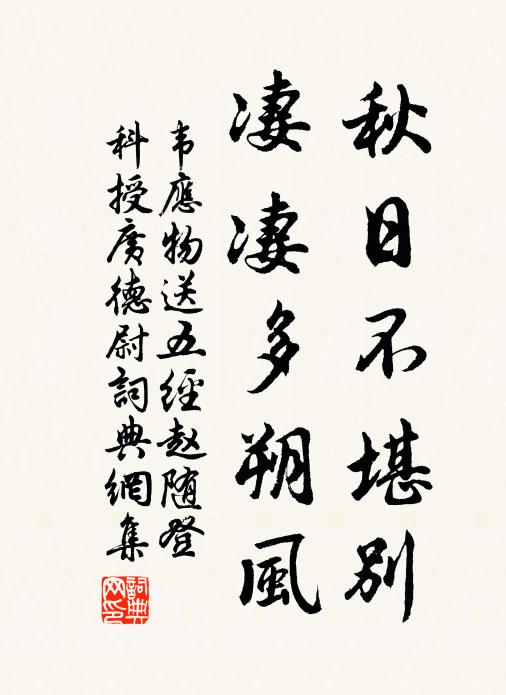 秋日不堪別
凄凄多朔風
韦應物送五經赵随登
科授廣德尉詞典網集
詞典
网印